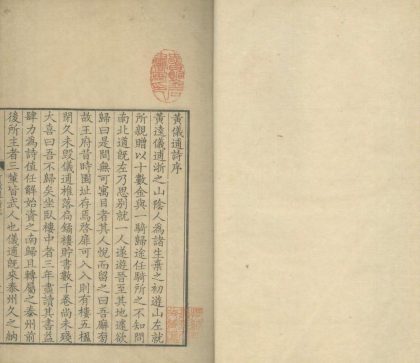 黃儀逋詩序
黃逵儀逋浙之山陰人為諸生棄之初遊山左就
所親贈以十數金與一騎歸途任騎所之不知問
南北道既左乃思別就一人遂遊晉至其地遽欲
歸曰是間無可寓目者其人悅而留之曰吾廨旁
故王府昔時園址存焉啓扉可入入則有樓五楹
閉久未毀儀逋稚落扃鐍樓貯書數千卷尚未殘
大喜曰吾不歸矣坐臥樓中者三年盡讀其書益
肆力為詩值任解始資之南歸且轉屬之泰州前
後所主者三輩皆武人也儀逋既來泰州久之納